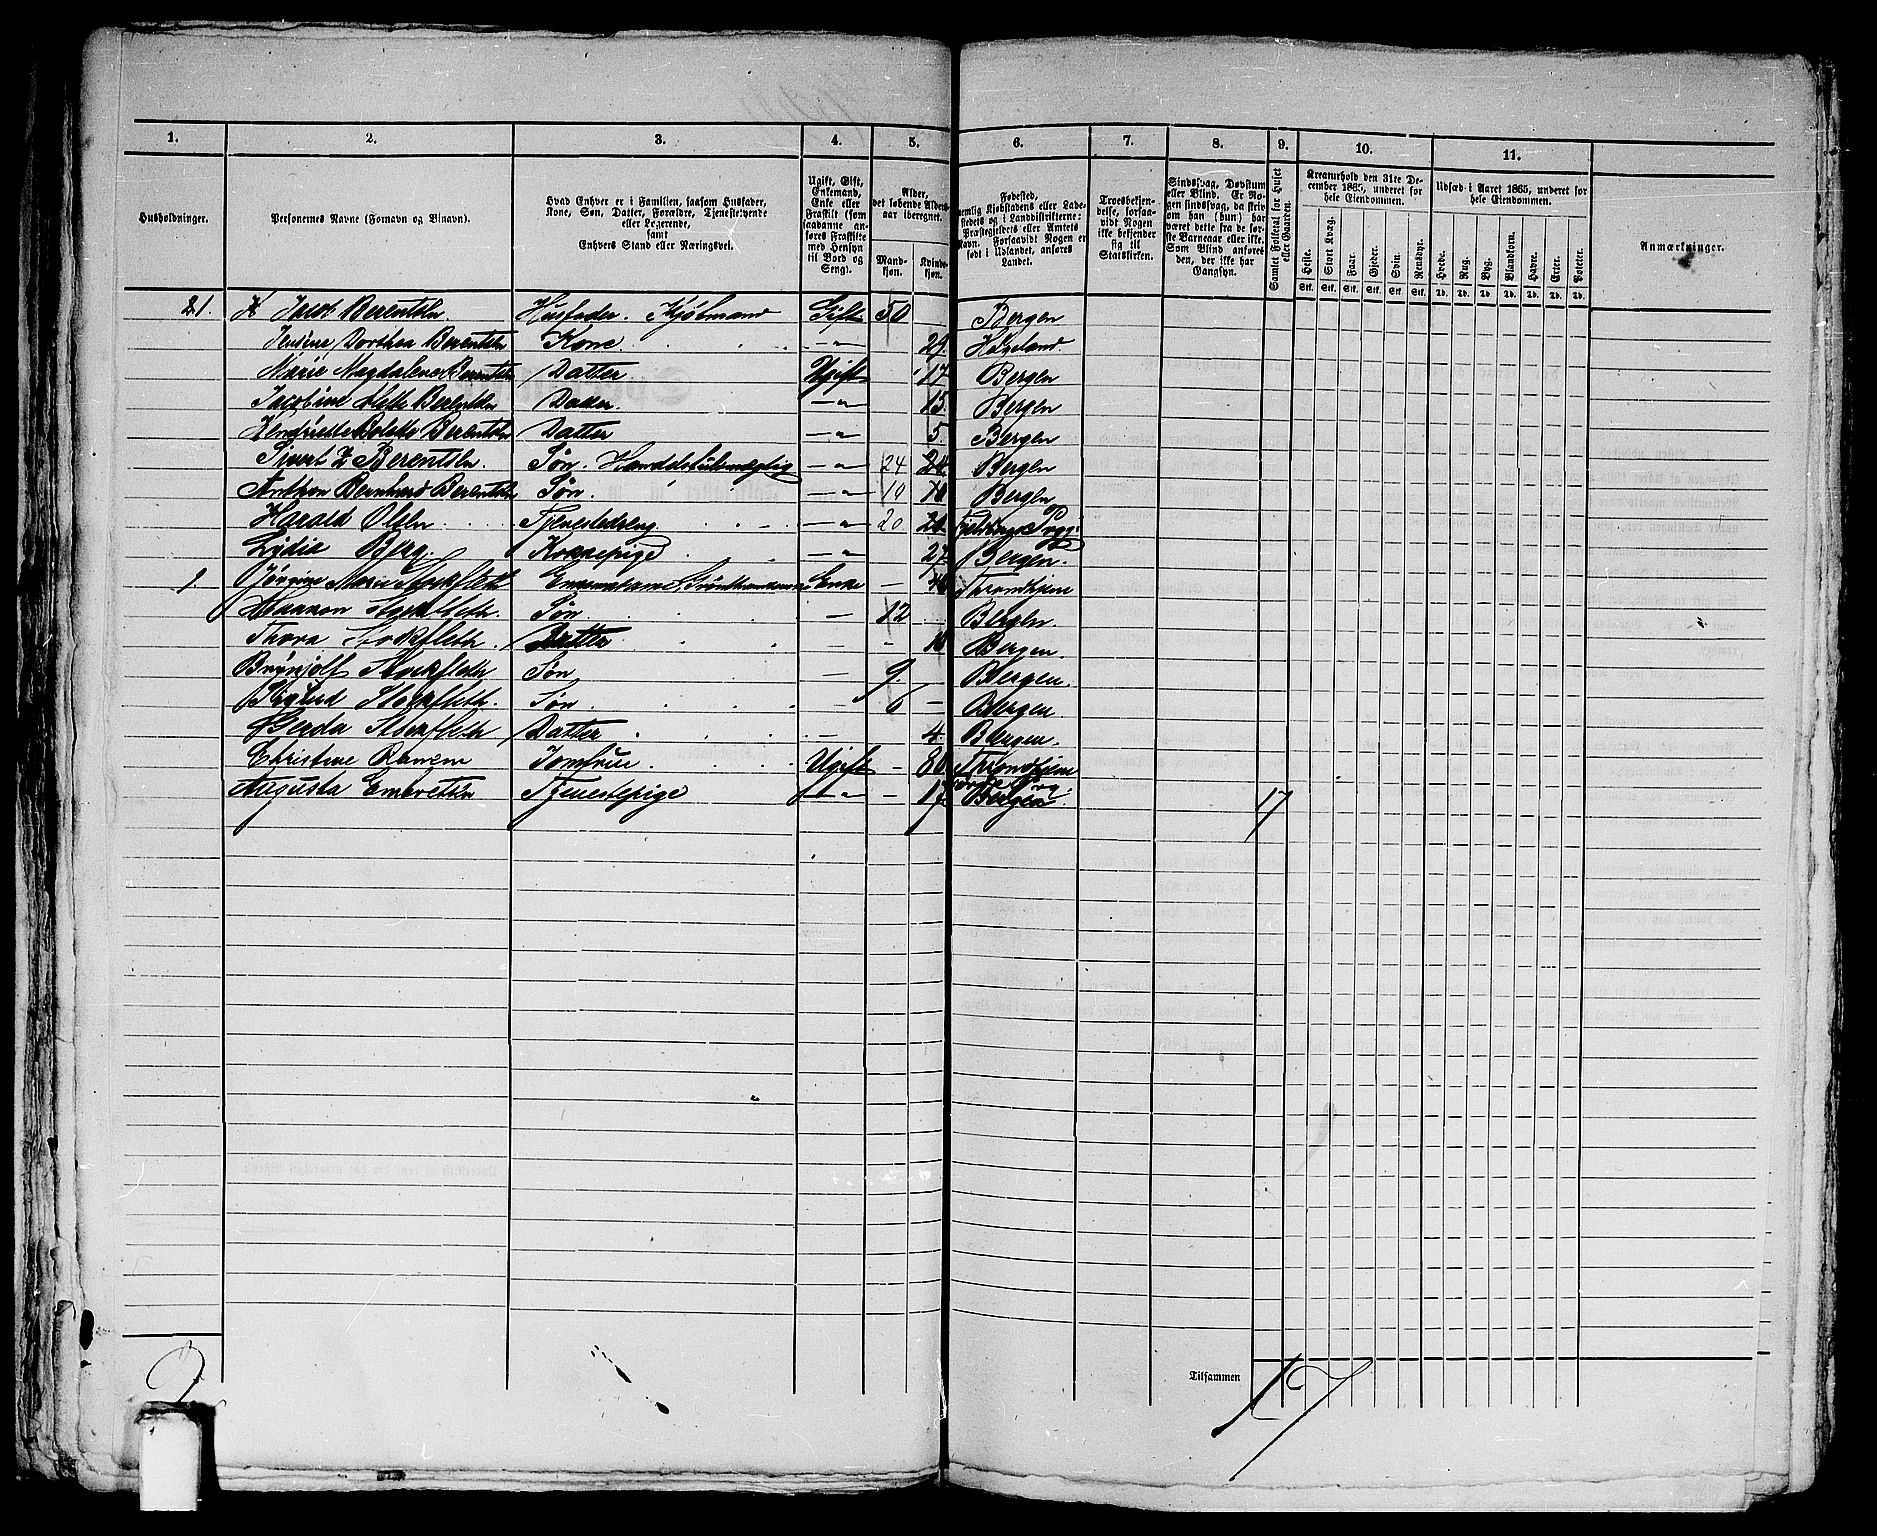 1. 2. 3. 4. 5. 6. 7. 8. 9. 10. 11.
Husholdninger.
Personernes Navne (Fornavn og Binavn).
Hvad Enhver er i Familien, saasom Husfader, Kone, Søn, Datter, Forældre, Tjenestetyende eller Logerende, samt Enhvers Stand eller Næringsvei.
Ugift, Gift, Enkemand, Enke eller Fraskilt (som saadanne anføres Fraskilte med Hensyn til Bord og Seng).
Alder, det løbende Aldersaar iberegnet.
Mandkjøn. Kvindekjøn.
Fødested, nemlig Kjøbstadens eller Ladestedets og i Landdistrikterne: Præstegjeldets eller Amtets Navn. Forsaavidt Nogen er født i Udlandet, anføres Landet.
Troesbekjendelse, forsaavidt Nogen ikke bekjender sig til Statskirken.
Sindssvag, Døvstum eller Blind. Er Nogen sindssvag, da skrives om han (hun) har været dette fra de første Barneaar eller ikke. Som Blind anføres den, der ikke har Gangsyn.
Samlet Folketal for Huset eller Gaarden.
Kreaturhold den 31te December 1865, underet for hele Eiendommen.
Heste. Stort Kvæg. Faar. Gjeder. Svin. Rensdyr.
Stk. Stk. Stk. Stk. Stk. Stk.
Udsæd i Aaret 1865, underet for hele Eiendommen.
Hvede. Rug. Byg. Blandkorn. Havre. Erter. Poteter.
Td. Td. Td. Td. Td. Td. Td.
Anmærkninger.
21. Jacob Berentsen. Husfader. Kjøbmand Gift 50 Bergen
Jensine Dorthea Berentsen Kone. — " 29. Haugeland.
Marie Magdalene Berentsen Datter Ugift 17 Bergen
Jacobine Mette Berentsen Datter. — " 15. Bergen
Hendriette Bolette Berentsen Datter — " 5 Bergen
Sivert Z Berentsen. Søn. Handelsfuldmægtig — " 24 Bergen
Anthon Bernhard Berentsen Søn. — " 10 Bergen
Harald Olsen Tjenestedreng — " 20. 20
Lydia Berg. Kokkepige — " 27. Bergen.
1. Jørgine Marie Stockfleth Enke — 46 Throndhjem
Haakon Stockfleth. Søn — 12 Bergen.
Thora Stockfleth. Datter — 10 Bergen.
Brynjolf Stockfleth Søn — 9. Bergen.
Sigurd Stockfleth. Søn. — 6 — Bergen.
Gerda Stockfleth Datter — 4. Bergen.
Christine Ranem Jomfrue. Ugift — 80 Throndhjem
Augusta Embretsen Tjenestepige — " — 17 Bergen. 17
2
Tilsammen 17